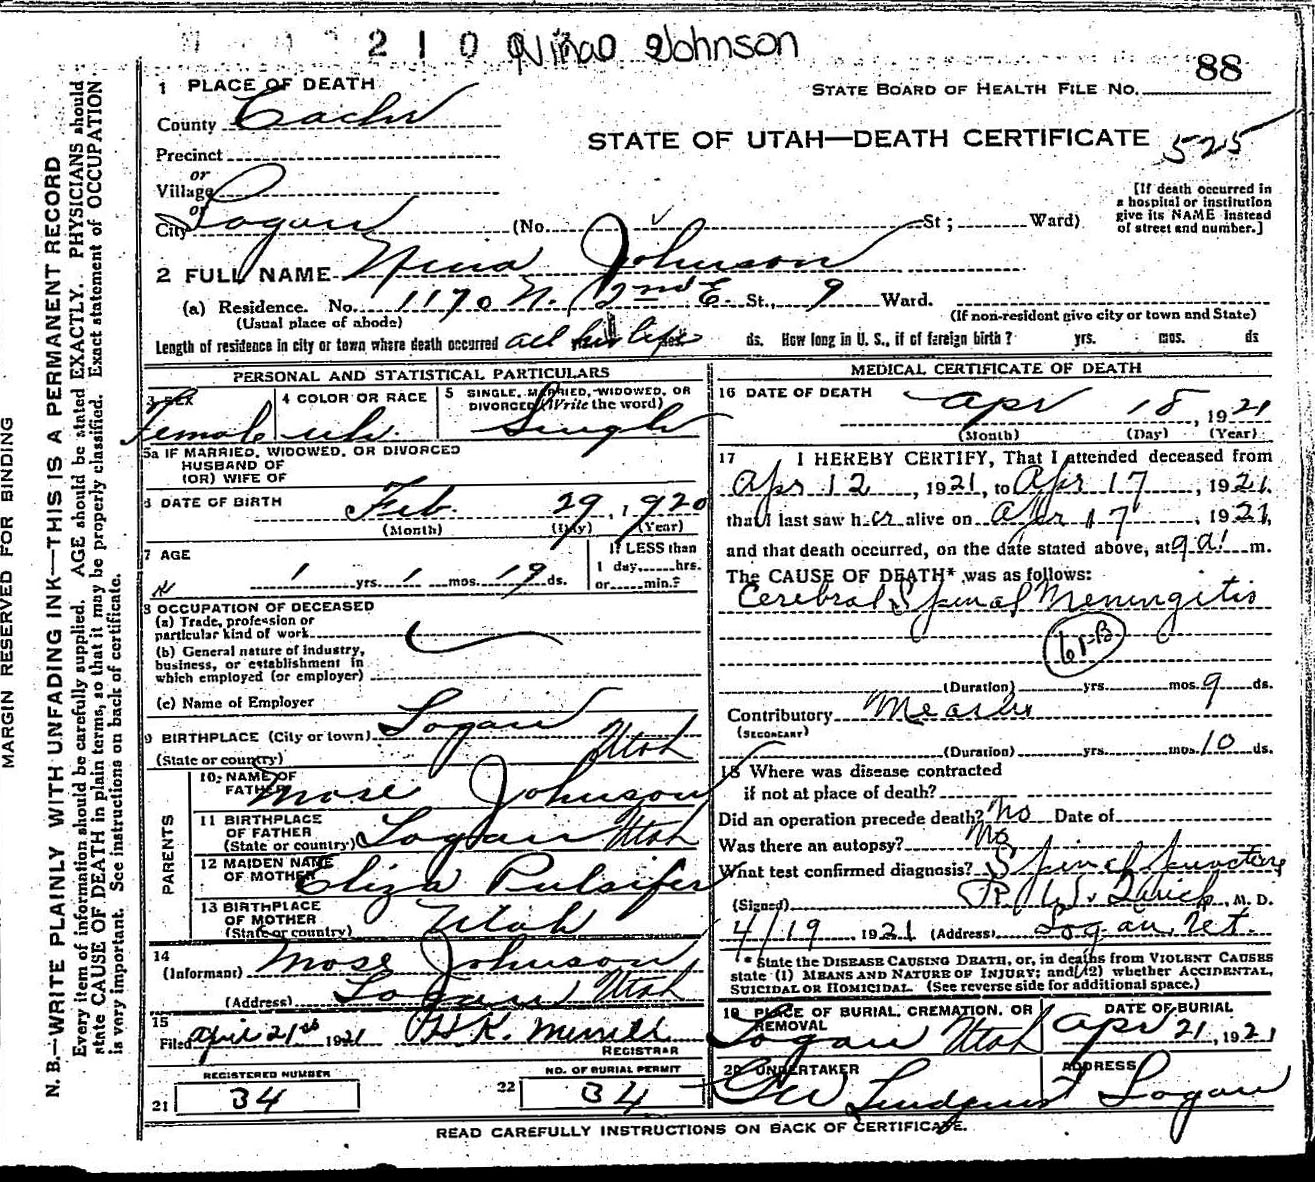 210 Nina Johnson
88
1 PLACE OF DEATH
STATE BOARD OF HEALTH FILE NO.
County Cache
STATE OF UTAH—DEATH CERTIFICATE 525
Precinct
or
Village
or
City Logan (No. St; Ward)
[If death occurred in
a hospital or institution
give its NAME instead
of street and number.]
2 FULL NAME Nina Johnson
(a) Residence. No. 1170 N. 2nd E. St., 9 Ward.
(Usual place of abode) (If non-resident give city or town and State)
Length of residence in city or town where death occurred all her life ds. How long in U. S., if of foreign birth? yrs. mos. ds
PERSONAL AND STATISTICAL PARTICULARS
3 SEX
Female
4 COLOR OR RACE
wh.
5 SINGLE, MARRIED, WIDOWED, OR
DIVORCED (Write the word)
Single
5a IF MARRIED, WIDOWED, OR DIVORCED
HUSBAND OF
(OR) WIFE OF
6 DATE OF BIRTH Feb. 29, 1920
(Month) (Day) (Year)
7 AGE
1 yrs. 1 mos. 19 ds.
If LESS than
1 day, hrs.
or min.?
8 OCCUPATION OF DECEASED
(a) Trade, profession or
particular kind of work
(b) General nature of industry,
business, or establishment in
which employed (or employer)
(c) Name of Employer
9 BIRTHPLACE (City or town) Logan
(State or country) Utah
PARENTS
10 NAME OF
FATHER Mose Johnson
11 BIRTHPLACE
OF FATHER
(State or country) Logan Utah
12 MAIDEN NAME
OF MOTHER Eliza Pulsifer
13 BIRTHPLACE
OF MOTHER
(State or country) Utah
14
(Informant) Mose Johnson
(Address) Logan Utah
15
Filed April 21st 1921 H K. Merrill
REGISTRAR
REGISTERED NUMBER
21 34
NO. OF BURIAL PERMIT
22 34
MEDICAL CERTIFICATE OF DEATH
16 DATE OF DEATH
Apr 18, 1921
(Month) (Day) (Year)
17 I HEREBY CERTIFY, That I attended deceased from
Apr 12, 1921, to Apr 17, 1921,
that I last saw her alive on Apr 17, 1921,
and that death occurred, on the date stated above, at 9 a m.
The CAUSE OF DEATH* was as follows:
Cerebral Spinal Meningitis
(Duration) yrs. mos. 9 ds.
Contributory Measles
(SECONDARY)
(Duration) yrs. mos. 10 ds.
18 Where was disease contracted
if not at place of death?
Did an operation precede death? No Date of
Was there an autopsy? No
What test confirmed diagnosis? Spinal puncture
(Signed) M. D.
4/19, 1921 (Address) Logan Ut.
* State the DISEASE CAUSING DEATH, or, in deaths from VIOLENT CAUSES
state (1) MEANS AND NATURE OF INJURY; and (2) whether ACCIDENTAL,
SUICIDAL OR HOMICIDAL. (See reverse side for additional space.)
19 PLACE OF BURIAL, CREMATION, OR
REMOVAL
Logan Utah
DATE OF BURIAL
Apr 21, 1921
20 UNDERTAKER
Lindquist
ADDRESS
Logan
READ CAREFULLY INSTRUCTIONS ON BACK OF CERTIFICATE.
MARGIN RESERVED FOR BINDING
N. B.—WRITE PLAINLY WITH UNFADING INK—THIS IS A PERMANENT RECORD
Every item of information should be carefully supplied. AGE should be stated EXACTLY. PHYSICIANS should
state CAUSE OF DEATH in plain terms, so that it may be properly classified. Exact statement of OCCUPATION
is very important. See instructions on back of certificate.